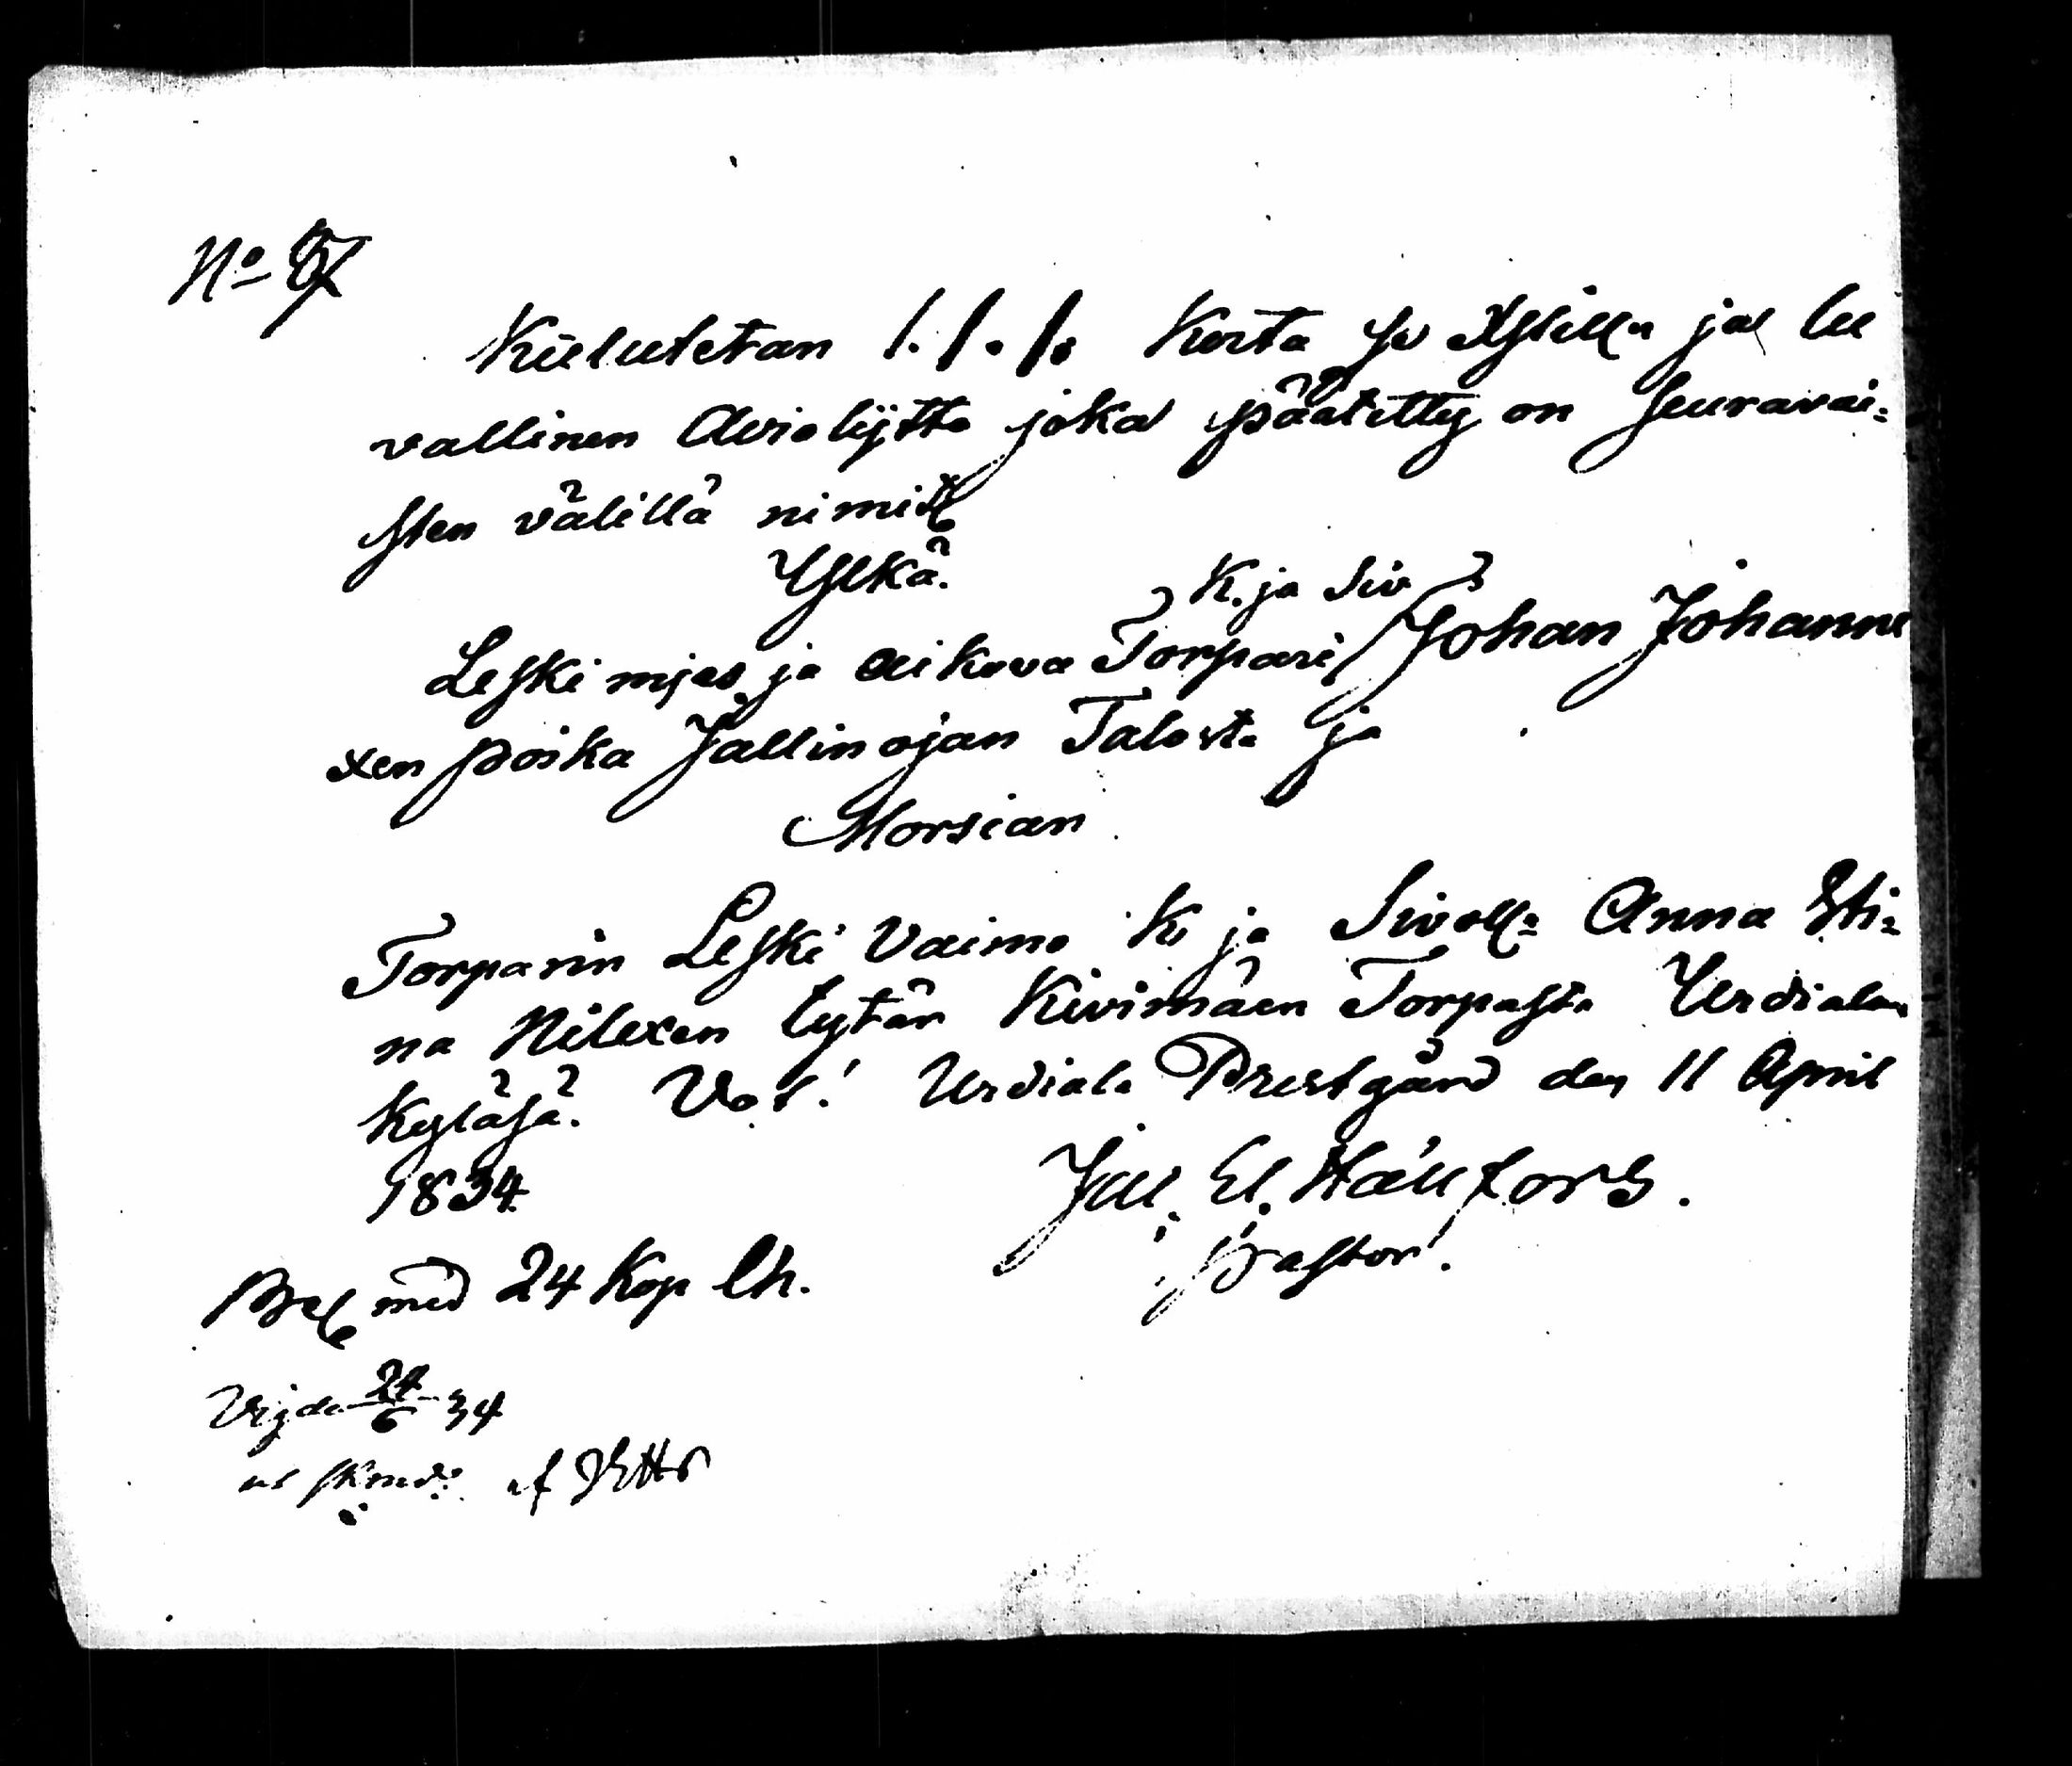 No 67
Kuulutetan 1. 1. 1. Kerta se Xstilln ja lu
vallinen Aviolijtto joka päätetty on seuravai-
sten välillä nimitt
Yljkä.
K. ja Siv
Leski mjes ja aikova Torpari Johan Johanne
xen poika Jallinojan Talosta ja
Morsian
Torparin Leski Vaimo K. ja Siv Anna Sti-
na Nilexen tytär Kivimäen Torpasta Urdialan
Kyläsä. Ut! Urdiala Prestgård den 11 April
1834
Joh. El. Hällfors.
Pastor.
Bel med 24 Kop Ch.
Vigde 24/6 34
af